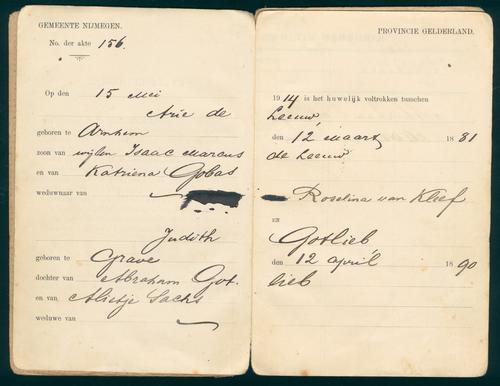 GEMEENTE NIJMEGEN.
No. der akte 156.
Op den 15 Mei
Arie de
geboren te Arnhem
zoon van wijlen Isaac Marcus
en van Katriena Gobas
weduwnaar van
Judith
geboren te Grave
dochter van Abraham Got-
en van Alietje Sachs
weduwe van
PROVINCIE GELDERLAND.
1914 is het huwelijk voltrokken tusschen
Leeuw,
den 12 Maart 1881
de Leeuw
Roselina van Kleef
en
Gotlieb
den 12 april 1890
lieb